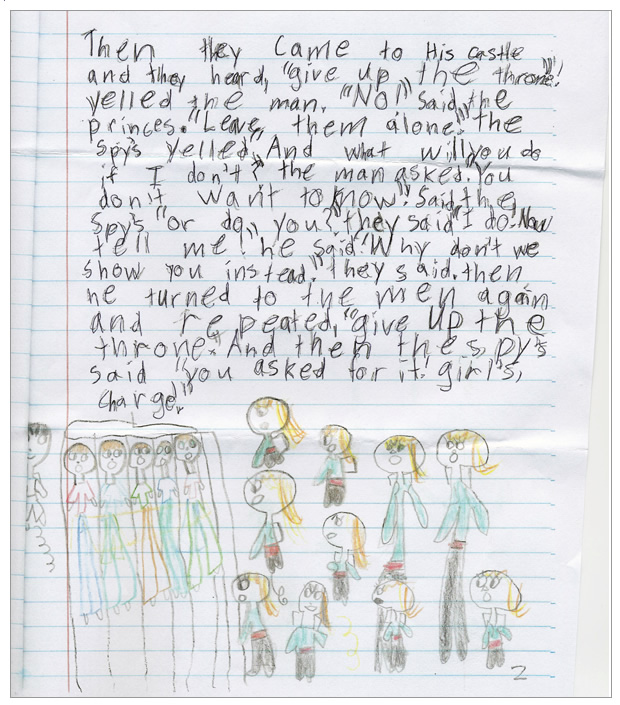 Then they came to His castle
and they heard, "give up the throne"!
yelled the man. "No!" said the
princes. "Leave them alone." the
spy's yelled. And what will you do
if I don't?" the man asked. You
don't want to know". Said the
Spy's "or do you?" they said "I do! Now
tell me! he said. Why don't we
show you instead," they said. then
he turned to the men again
and repeated, "give up the
throne". And then the spy's
said "you asked for it! girl's,
charge!"
2